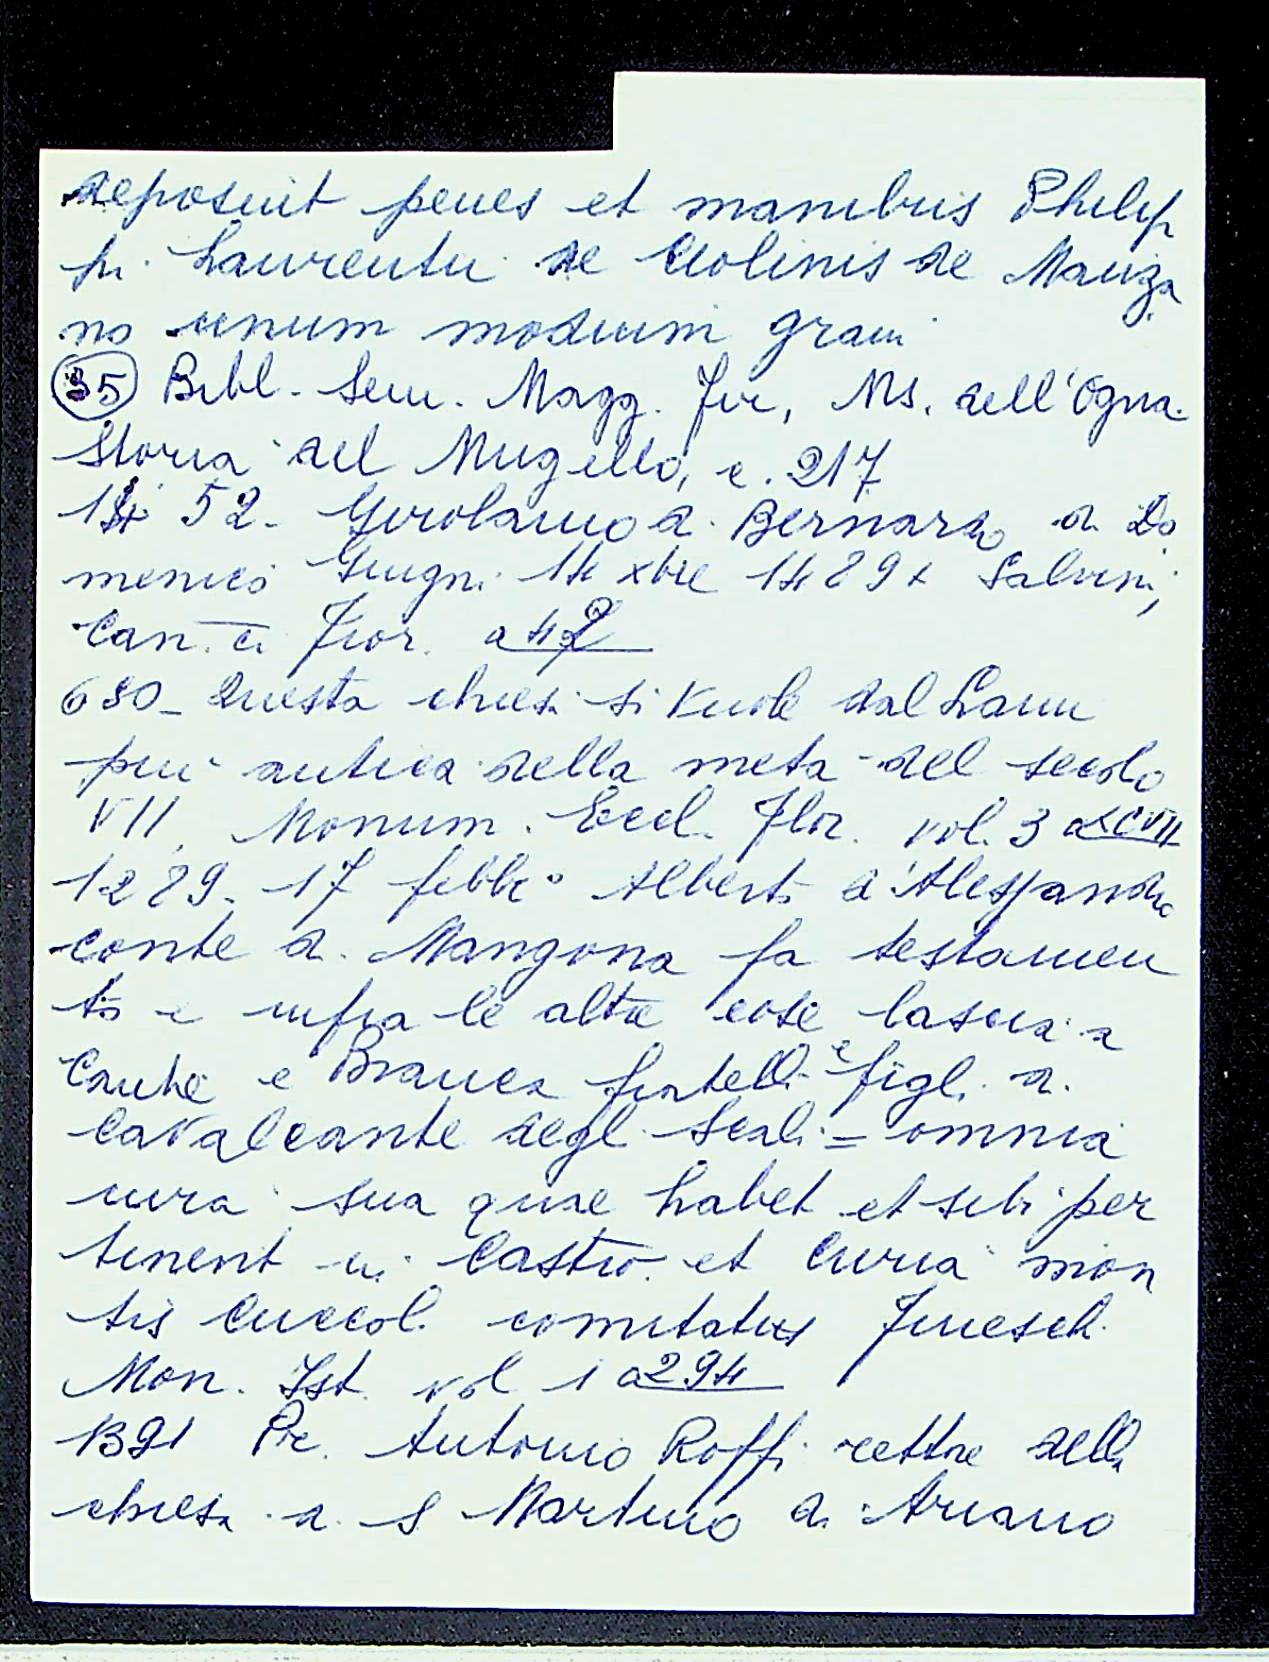 deposuit penes et manibus Philip
pi Laurentii de Ciolinis de Manga
no unum modium grani
(35) Bibl. Sem. Magg. Fir, Ms. dell'Ogna
Storia del Mugello, c. 217
1452 - Girolamo di Bernardo di Do
menico Giugni 14 xbre 1489 + Salvini,
Can. ci Fior. a 42
630 - Questa chiesa si vuole dal Lami
più antica della metà del secolo
VII. Monum. Eccl. Flor. vol. 3 a XCVII
1289 - 17 febb.° Alberto d'Alessandro
conte di Mangona fa testamen
to e infra le altre cose lascia a
Cante e Branca fratelli e figli di
Cavalcante degli Scali = omnia
iura sua quae habet et sibi per
tinent in Castro et Curia mon
tis Cuccoli comitatus
Mon. Ist. vol 1 a 294
1321 Pre. Antonio Roffi rettore della
chiesa di S Martino di Ariano